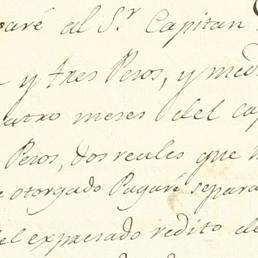 aré al S.r Capitan
y tres Pesos, y med
atro meses del ca
Pesos, dos reales que
otorgado Pagaré separa
el expresado redito de